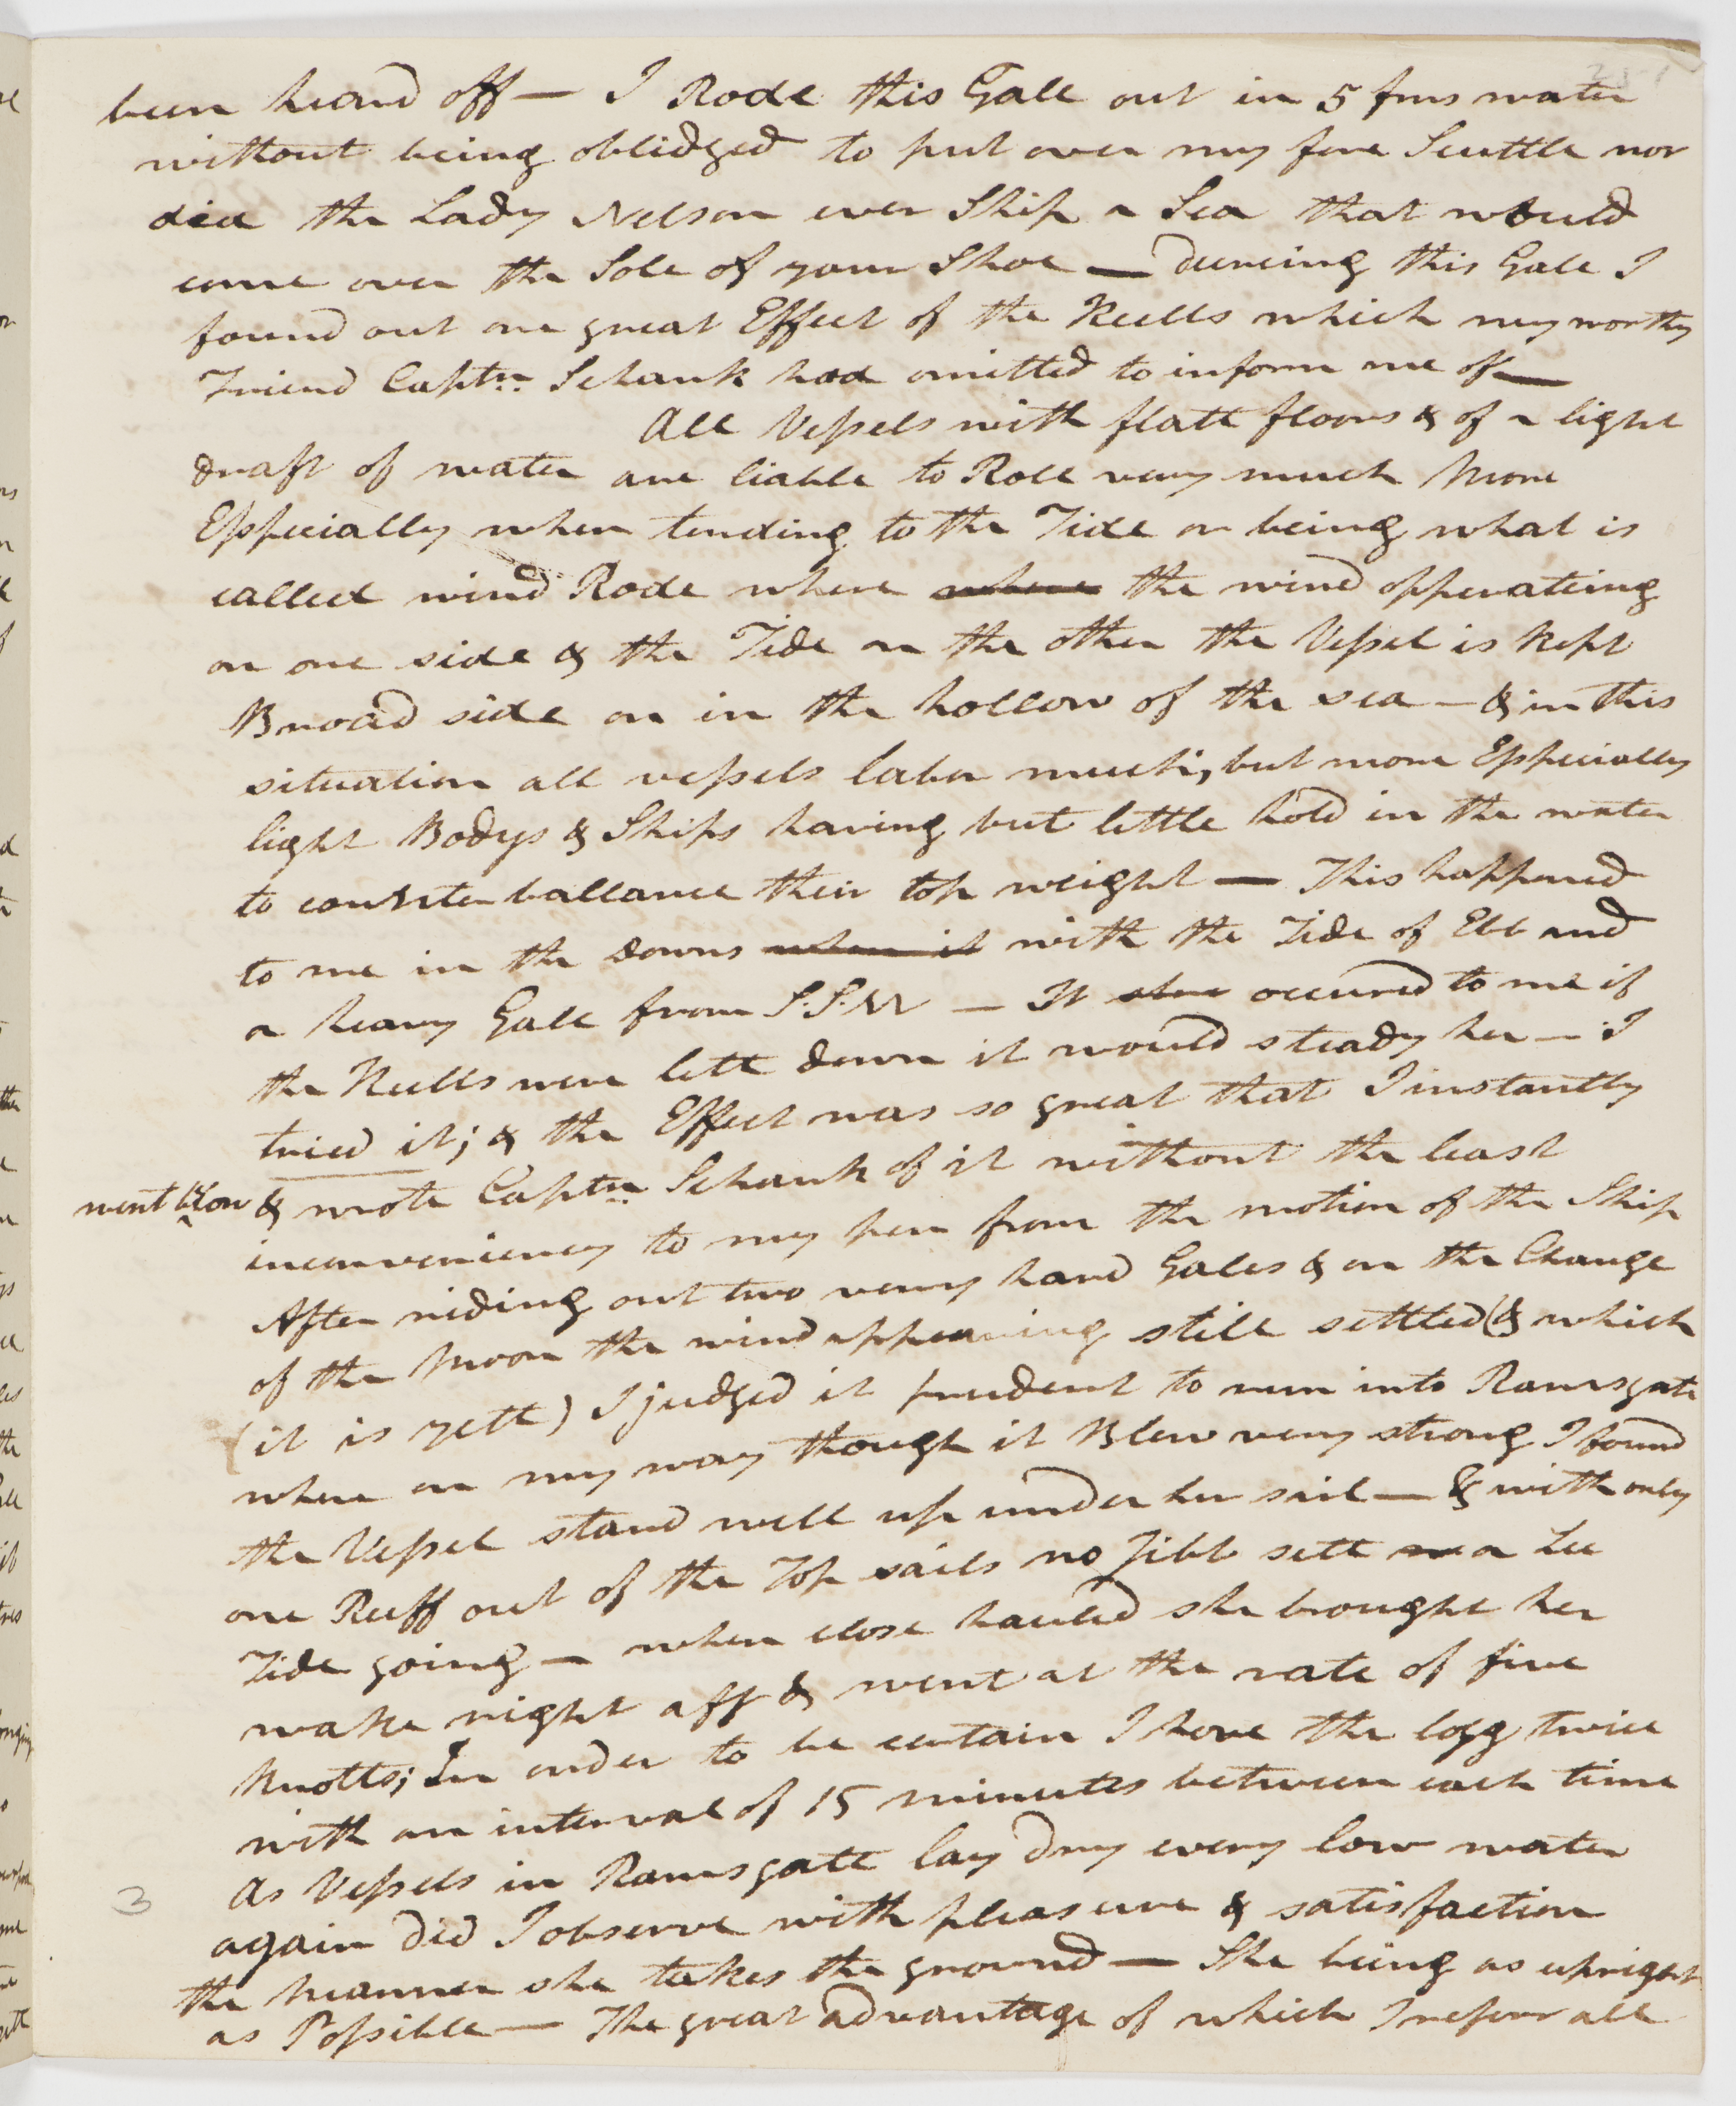 been heard off — I Rode this Gale out in 5 fms water
without being oblidged to put over my fore Scuttle nor
did the Lady Nelson ever Ship a Sea that would
come over the Sole of your Shoe — dureing this Gale I
found out one great Effect of the Keells which my worthy
Friend Captn. Schank had omitted to inform me of —
All Vessels with flatt floors & of a light
draft of water are liable to Roll very much More
Esspecially when tending to the Tide or being what is
called wind Rode where where the wind opperateing
on one side & the Tide on the other the Vessel is Kept
Broad side on in the hollow of the sea — & in this
situation all vessels labor much, but more Esspecially
light Bodys & Ships having but little hold in the water
to counter ballance their top weight — This happened
to me in the Downs when it with the Tide of Ebb and
a heavy Gale from S.S.W — It occured to me if
the Keells were lett down it would steady her — I
tried it; & the Effect was so great that I instantly
went below & wrote Captn. Schank of it without the least
inconveniency to my pen from the motion of the Ship
After riding out two very hard Gales & on the Change
of the Moon the wind appearing still settled (& which
(it is yett) I judged it prudent to run into Ramsgate
where on my way though it Blew very strong I found
the Vessel stand well up under her sail — & with only
one Reeff out of the Top sails no Jibb sett a Lee
Tide going — when close hauled she brought her
wake right aff & went at the rate of five
Knotts; In order to be certain I hove the logg twice
with an interval of 15 minutes between each time
As Vessels in Ramsgate lay dry every low water
again did I observe with pleasure & satisfaction
3
the Manner she takes the ground — She being as upright
as Possible — The great advantage of which I referr all